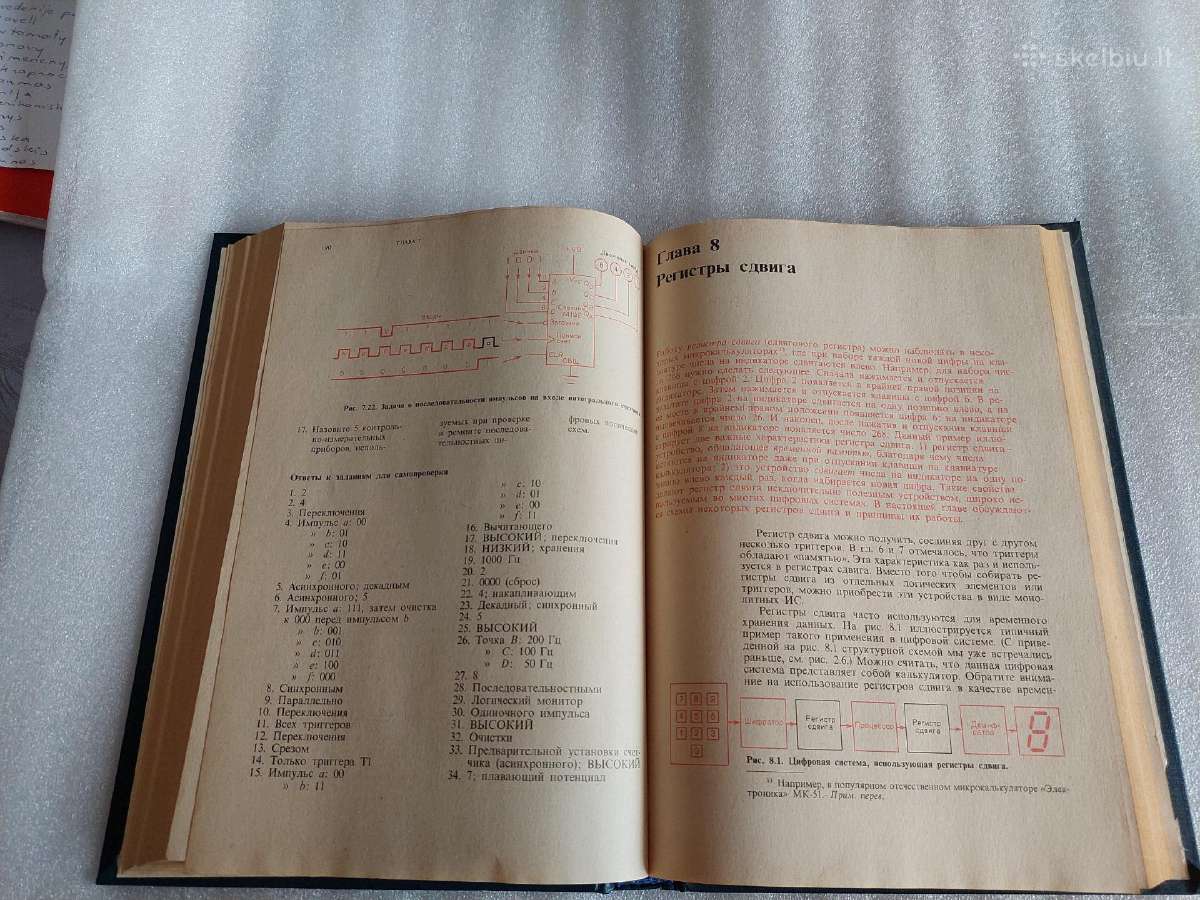 skelbiu.lt
ГЛАВА 7
Входы
Рис. 7.22. Задача о последовательности импульсов на входе интегрального счетчика
17. Назовите 5 контроль-
но-измерительных
приборов, исполь-
зуемых при проверке
и ремонте последова-
тельностных ци-
фровых логических
схем.
Ответы к заданиям для самопроверки
1. 2
2. 4
3. Переключения
4. Импульс a: 00
» b: 01
» c: 10
» d: 11
» e: 00
» f: 01
5. Асинхронного; декадным
6. Асинхронного; 5
7. Импульс a: 111, затем очистка
к 000 перед импульсом b
» b: 001
» c: 010
» d: 011
» e: 100
» f: 000
8. Синхронным
9. Параллельно
10. Переключения
11. Всех триггеров
12. Переключения
13. Срезом
14. Только триггера T1
15. Импульс a: 00
» b: 11
» c: 10
» d: 01
» e: 00
» f: 11
16. Вычитающего
17. ВЫСОКИЙ; переключения
18. НИЗКИЙ; хранения
19. 1000 Гц
20. 2
21. 0000 (сброс)
22. 4; накапливающим
23. Декадный; синхронный
24. 5
25. ВЫСОКИЙ
26. Точка B: 200 Гц
» C: 100 Гц
» D: 50 Гц
27. 8
28. Последовательностными
29. Логический монитор
30. Одиночного импульса
31. ВЫСОКИЙ
32. Очистки
33. Предварительной установки счет-
чика (асинхронного); ВЫСОКИЙ
34. 7; плавающий потенциал
Глава 8
Регистры сдвига
Работу регистра сдвига (сдвигового регистра) можно наблюдать в неко-
торых микрокалькуляторах¹⁾, где при наборе каждой новой цифры на кла-
виатуре числа на индикаторе сдвигаются влево. Например, для набора чис-
ла 268 нужно сделать следующее. Сначала нажимается и отпускается
клавиша с цифрой 2. Цифра 2 появляется в крайней правой позиции на
индикаторе. Затем нажимается и отпускается клавиша с цифрой 6. В ре-
зультате цифра 2 на индикаторе сдвигается на одну позицию влево, а на
ее месте в крайнем правом положении появляется цифра 6; на индикаторе
высвечивается число 26. И наконец, после нажатия и отпускания клавиши
с цифрой 8 на индикаторе появляется число 268. Данный пример иллю-
стрирует две важные характеристики регистра сдвига. 1) регистр сдвига–
устройство, обладающее временной памятью, благодаря чему числа
остаются на индикаторе даже при отпускании клавиш на клавиатуре
калькулятора; 2) это устройство сдвигает числа на индикаторе на одну по-
зицию влево каждый раз, когда набирается новая цифра. Такие свойства
делают регистр сдвига исключительно полезным устройством, широко ис-
пользуемым во многих цифровых системах. В настоящей главе обсуждают-
ся схемы некоторых регистров сдвига и принципы их работы.
Регистр сдвига можно получить, соединяя друг с другом
несколько триггеров. В гл. 6 и 7 отмечалось, что триггеры
обладают «памятью». Эта характеристика как раз и исполь-
зуется в регистрах сдвига. Вместо того чтобы собирать ре-
гистры сдвига из отдельных логических элементов или
триггеров, можно приобрести эти устройства в виде моно-
литных ИС.
Регистры сдвига часто используются для временного
хранения данных. На рис. 8.1 иллюстрируется типичный
пример такого применения в цифровой системе. (С приве-
денной на рис. 8.1 структурной схемой мы уже встречались
раньше, см. рис. 2.6.) Можно считать, что данная цифровая
система представляет собой калькулятор. Обратите внима-
ние на использование регистров сдвига в качестве времен-
7 8 9
4 5 6
1 2 3
Шифратор
Регистр
сдвига
Процессор
Регистр
сдвига
Дешиф-
ратор
8
Рис. 8.1. Цифровая система, использующая регистры сдвига.
¹⁾ Например, в популярном отечественном микрокалькуляторе «Элек-
троника» МК-51.–Прим. перев.